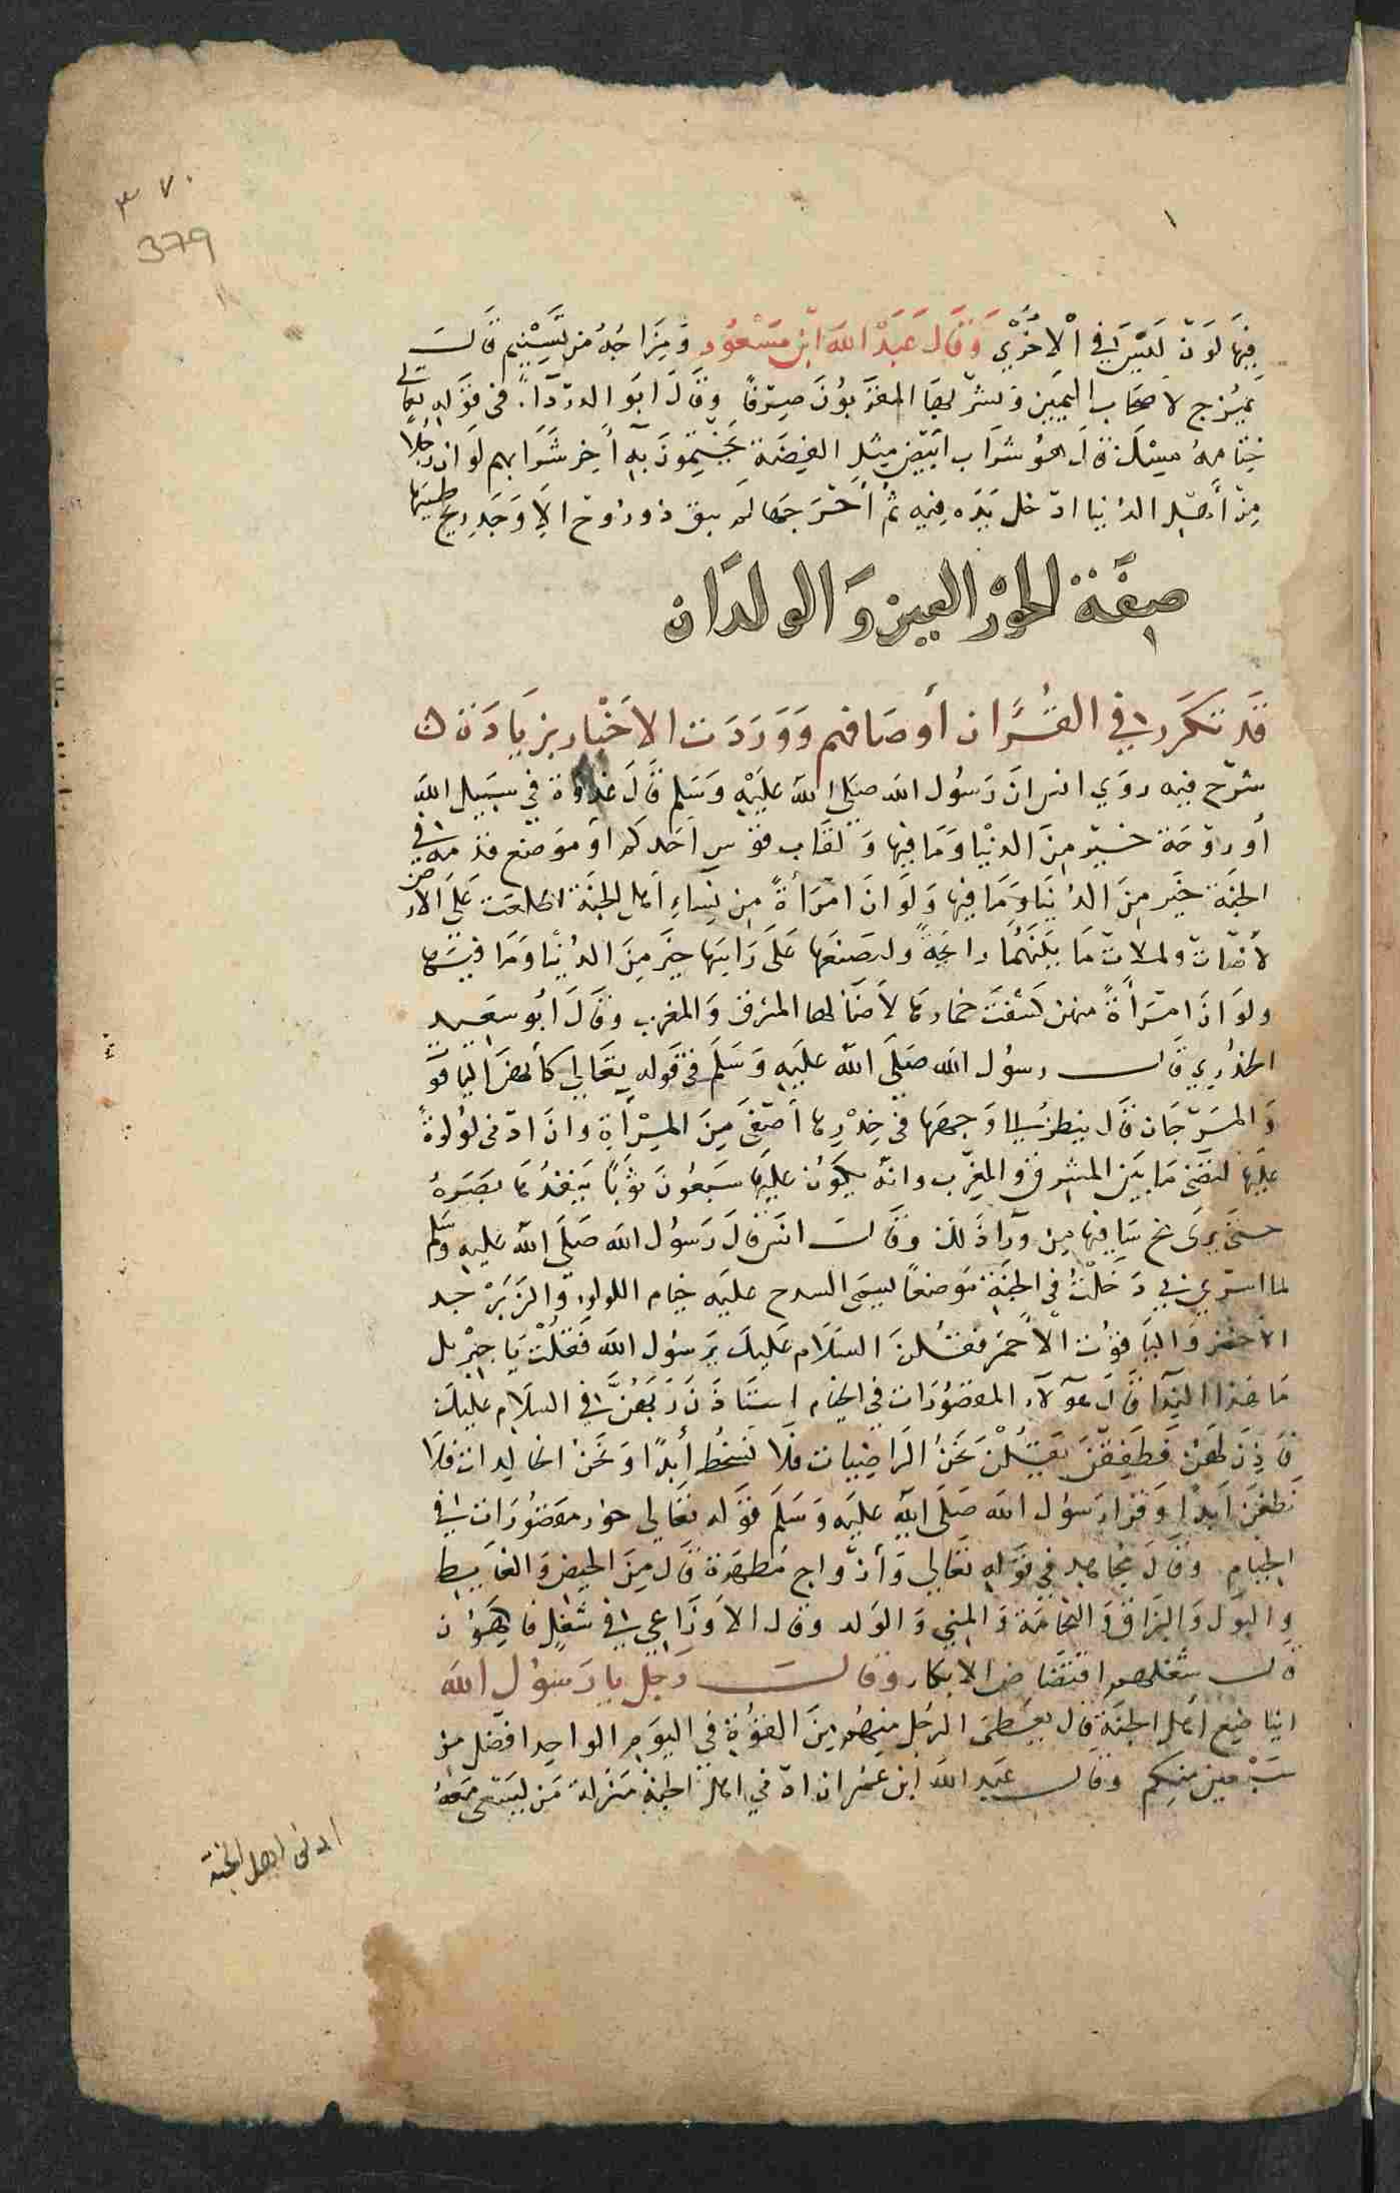 ٣٧٠
379
١
فيها لون ليس في الاخري وقال عبد الله ابن مسعود ومزاجه من تسنيم قال
يمزج لاصحاب اليمين ويشربها المقربون صرفًا وقال ابو الدردآء في قوله تعالي
ختامه مسك قال هو شراب ابيض مثل الفضة يختمون به اخر شرابهم لو ان رجلا
من أهل الدنيا ادخل يده فيه ثم أخرجها لم يبق ذو روح الا وجد ريح طيبها
صفة الحور العين والولدان
قد تكرر في القران أوصافهم ووردت الاخبار بزيادة
شرح فيه روي انس ان رسول الله صلي الله عليه وسلم قال غدوة في سبيل الله
أو روحة خير من الدنيا وما فيها ولقاب قوس احدكم أو موضع قدمه في
الجنة خير من الدنيا وما فيها ولو ان امرأة من نساء اهل الجنة اطلعت علي الارض
لأضات ولملات ما بينهما رايحة ولنصيفها على راسها خير من الدنيا وما فيها
ولو ان امرأة منهن كشفت خمارها لاضا لها المشرق والمغرب وقال أبو سعيد
الخدري قال رسول الله صلى الله عليه وسلم في قوله تعالي كأنهن الياقوت
والمرجان قال ينظر الي وجهها في خدرها أصفى من المرأة وان ادنى لؤلوة
عليها لتضى ما بين المشرق والمغرب وانه يكون عليها سبعون ثوبًا ينفدها بصره
حتى يرى مخ ساقيها من ورآ ذلك وقال انس قال رسول الله صلى الله عليه وسلم
لما اسري بي دخلت في الجنة موضعًا يسمى السدح عليه خيام اللولو والزبرجد
الاخضر والياقوت الأحمر فقلن السلام عليك يرسول الله فقلت يا جبريل
ما هذا الندآ قال هولاء المقصورات في الخيام استاذن ربهن في السلام عليك
فاذن لهن فطفقن يقلن نحن الراضيات فلا نسخط أبدًا ونحن الخالدات فلا
نظعن ابدًا وقرا رسول الله صلى الله عليه وسلم قوله تعالي حور مقصورات في
الخيام وقال مجاهد في قوله تعالي وأزواج مطهرة قال من الحيض والغايط
والبول والبزاق والنخامة والمني والولد وقال الاوزاعي في شغل فاكهون
قال شغلهم افتضاض الابكار وقال رجل يا رسول الله
ايباضع اهل الجنة قال يعطى الرجل منهم من القوة في اليوم الواحد افضل من
سبعين منكم وقال عبد الله ابن عمر ان ادني اهل الجنة منزلة من يسعى معه
ادنى اهل الجنة